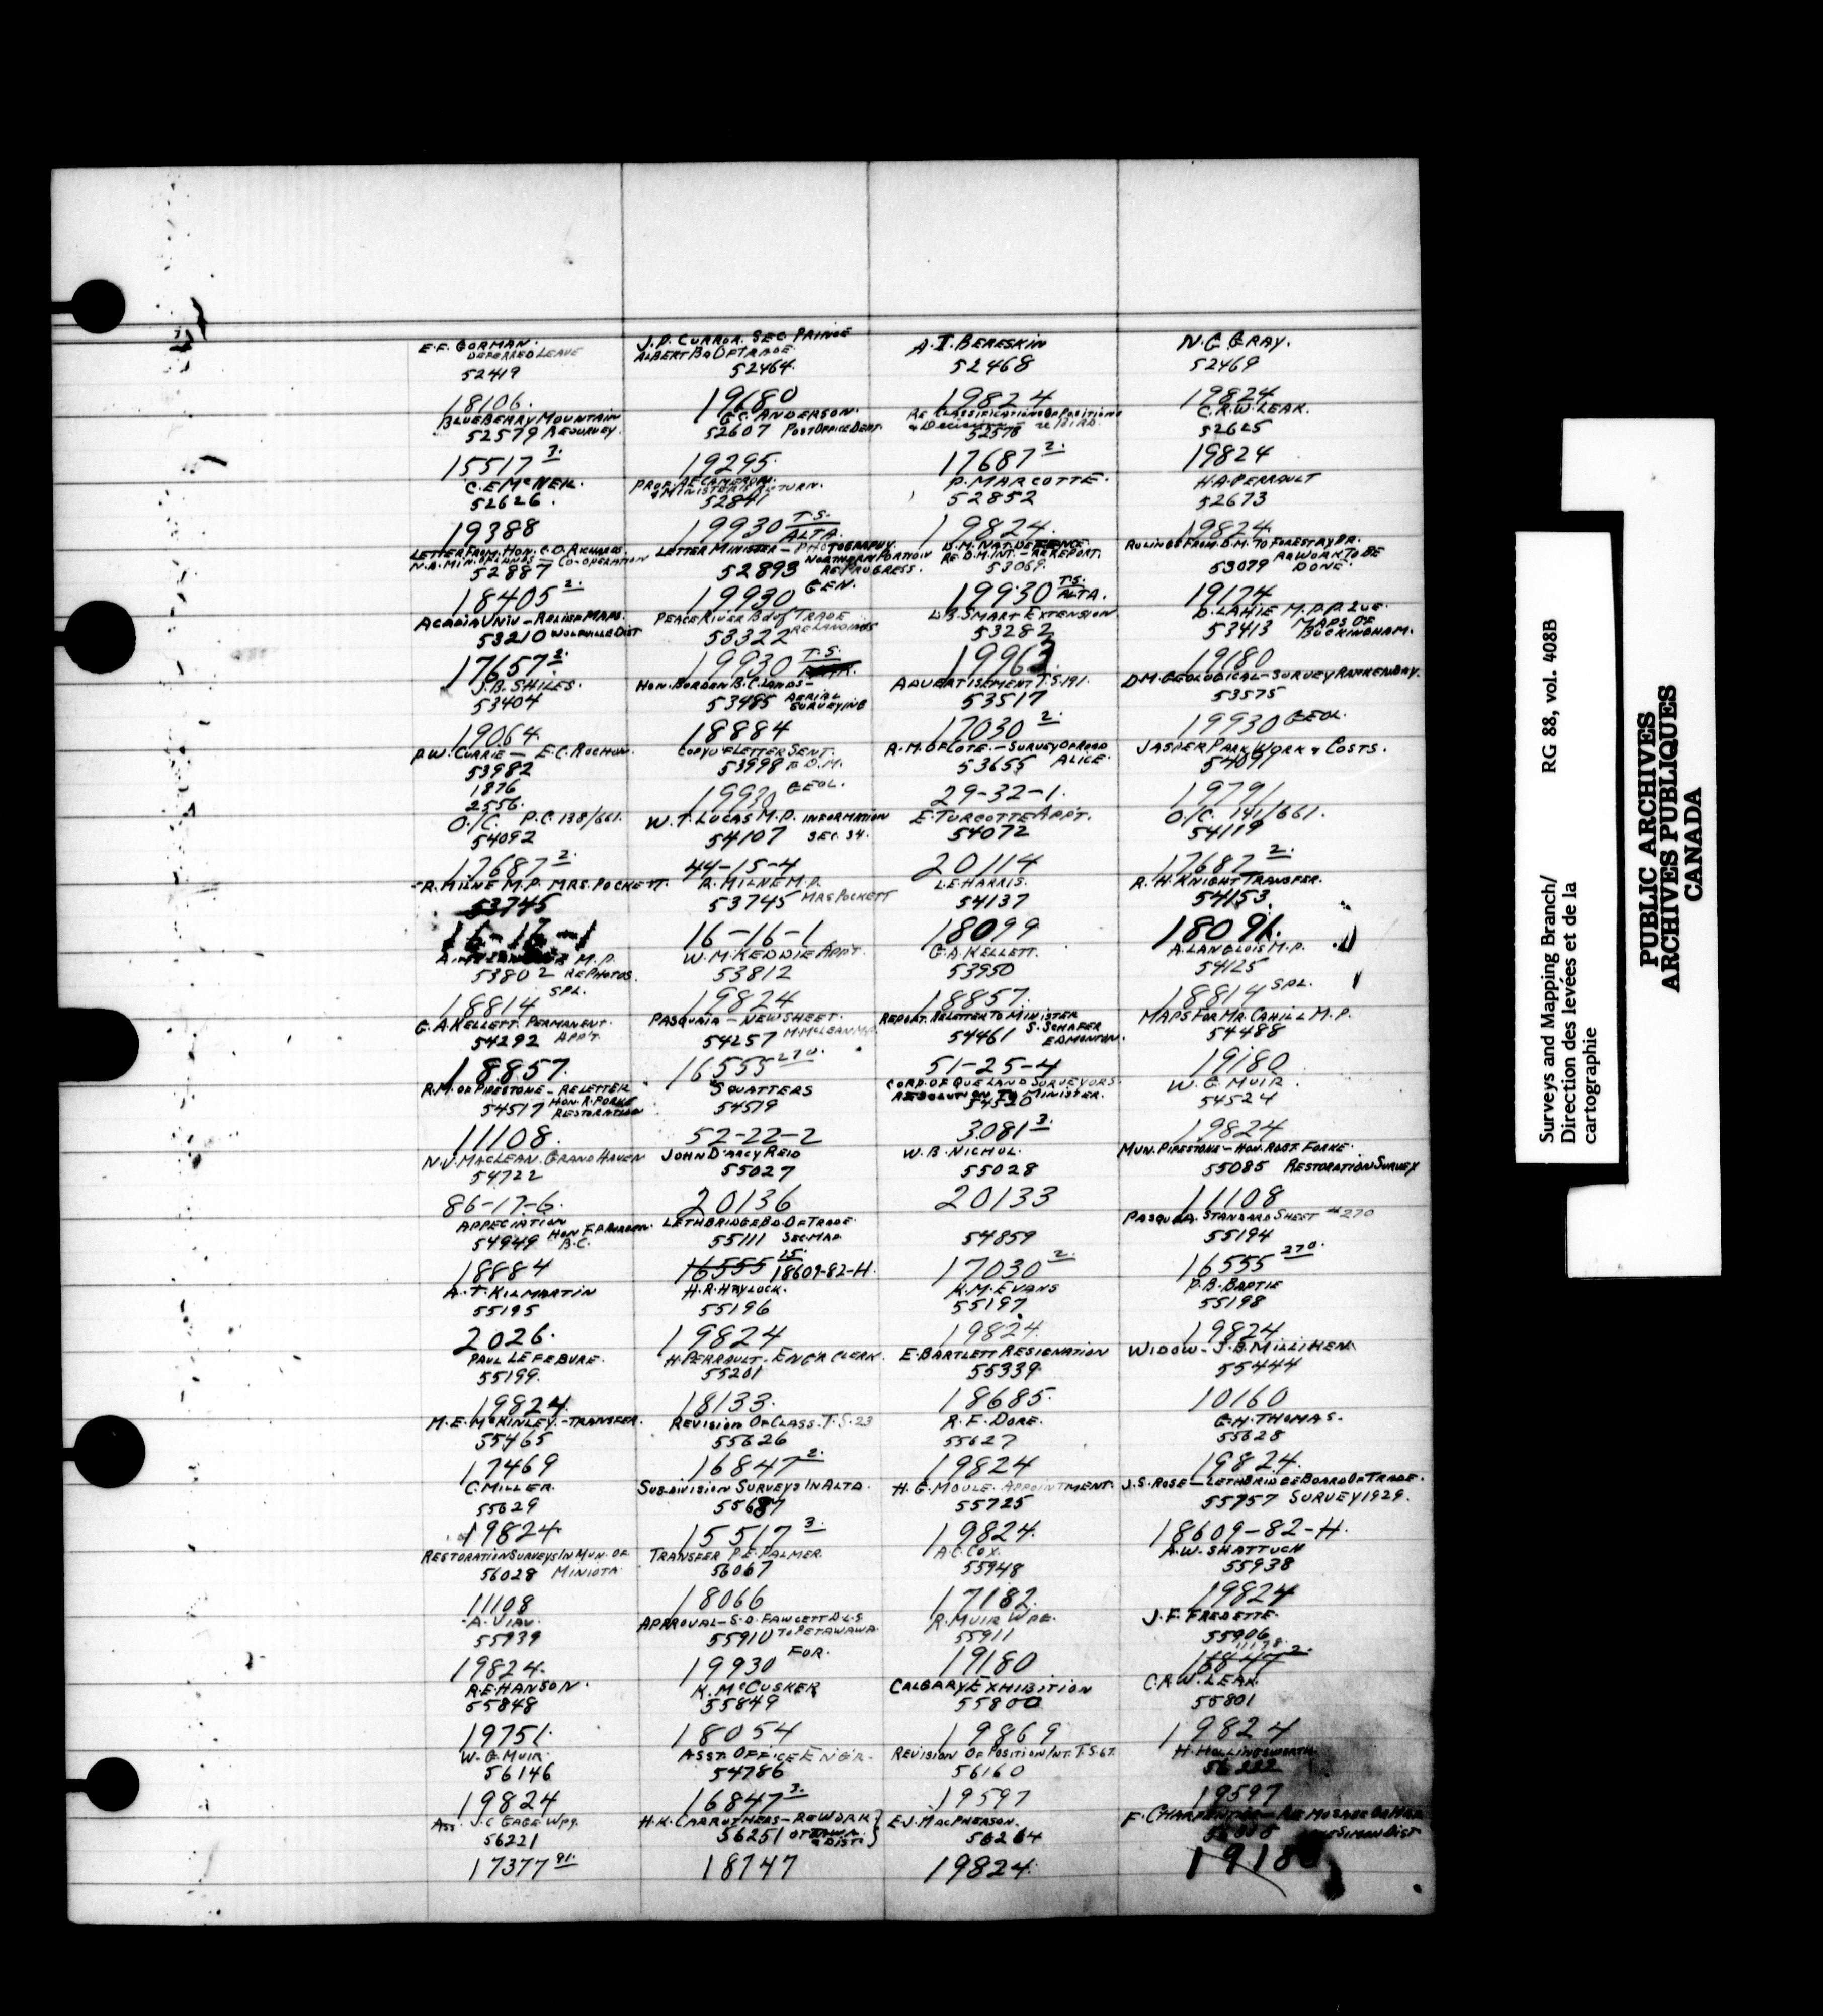 E.F. GORMAN.
DEFERRED LEAVE
52419
18106.
J.P. CURROR. SEC PRINCE
ALBERT BD OF TRADE.
52464.
19180
A.I. BERESKIN
52468
19824
N.C. GRAY.
52469
19824
BLUEBERRY MOUNTAIN
52579 RESURVEY.
15517 3.
G.C. ANDERSON.
52607 POST OFFICE DEPT.
19295.
RE CLASSIFICATIONS OF POSITIONS
& Decisions
52578
17687 2.
C.R.W. LEAK.
52625
19824
C.E. McNEIL.
52626.
19388
PROF. A.E. CAMERON.
& MINISTERS RETURN.
52841
19930 T.S. ALTA.
P. MARCOTTE.
52852
19824.
H.A. PERRAULT
52673
19824.
LETTER FROM. HON. C.D. RICHARDS.
N.B. MIN. OF LANDS — CO-OPERATION
52887
18405 2.
LETTER MINISTER — PHOTOGRAPHY.
NORTHERN PORTION
52893 RE PROGRESS.
19930 GEN.
D.M. NAT. DEFENCE
RE D.M. INT. — RE REPORT.
53069.
19930 T.S. ALTA.
RULINGS FROM D.M. TO FORESTRY BR.
RE WORK TO BE
53079 DONE.
19174
ACADIA UNIV — RELIEF MAPS.
53210 WOLFVILLE DIST
17657 2.
PEACE RIVER Bd of TRADE
53322 RE LANDINGS
19930 T.S.
L.B. SMART EXTENSION.
53282
19963.
D. LAHIE M.P.P. QUE.
MAPS OF
53413 BUCKINGHAM.
19180
J.B. SHILES.
53404
19064.
HON. BORDEN B.C. LANDS —
53485 AERIAL SURVEYING
18884
ADVERTISEMENT T.S. 191.
53517
17030 2.
D.M. GEOLOGICAL — SURVEY
53575
19930 GEOL.
P.W. CURRIE — E.C. ROCHON.
53982
1876
2556.
COPY OF LETTER SENT.
53998 TO D.M.
19930 GEOL.
R.M. OF LOTE. — SURVEY OF ROAD
53655 ALICE.
29-32-1.
JASPER PARK WORK & COSTS.
54091
19791
O/C. P.C. 138/661.
54092
17687 2.
W.T. LUCAS M.P. INFORMATION
54107 SEC. 34.
44-15-4
E. TURCOTTE APPT.
54072
20114
O/C. 141/661.
54119
17687 2.
R. MILNE M.P. MRS. POCKETT.
53745
16-16-1
R. MILNE M.P.
53745 MRS POCKETT
16-16-1
L.E. HARRIS.
54137
18099
R.H. KNIGHT TRANSFER.
54153
18091.
M.P.
53802 RE PHOTOS.
18814 SPL.
W.M. KEDDIE APPT.
53812
19824
G.A. KELLETT.
53950
18857.
A. LANGLOIS M.P.
54125
18814 SPL.
G.A. KELLETT. PERMANENT.
54292 APPT.
18857.
PASQUAIA — NEW SHEET.
54257 M. McLEAN M.P.
16555 270.
REPORT. RE LETTER TO MINISTER
54461 S. SCHAFER
EDMONTON.
51-25-4
MAPS FOR MR. CAHILL M.P.
54488
19180
R.M. OF PIPESTONE — RE LETTER
54517 HON. R. FORKE
RESTORATION
11108.
SQUATTERS
54519
52-22-2
CORP. OF QUE LAND SURVEYORS.
RESOLUTION TO MINISTER.
54520
3081 3.
W.G. MUIR.
54524
19824
N.V. MACLEAN. GRAND HAVEN
54722
86-17-6.
JOHN D'ARCY REID
55027
20136
W.B. NICHOL.
55028
20133
MUN. PIPESTONE — HON. ROBT FORKE.
55085 RESTORATION SURVEY
11108
APPECIATION
54949 HON F.P. BURDEN.
B.C.
18884
LETHBRIDGE BD. OF TRADE.
55111 SEC. MAP.
16555 15. 18609-82-H.
54859
17030 2.
PASQUIA. STANDARD SHEET #270
55194
16555 270.
A.T. KILMARTIN
55195
2026.
H.R. HAYLOCK.
55196
19824
K.M. EVANS
55197
19824.
P.B. BAPTIE
55198
19824.
PAUL LEFEBVRE.
55199.
19824.
H. PERRAULT. ENG'R CLERK.
55201
18133.
E. BARTLETT RESIGNATION
55339.
18685.
WIDOW — J.B. MILLIKEN.
55444
10160
M.E. McKINLEY. — TRANSFER.
55465
17469
REVISION OF CLASS. T.S. 23
55626
16847 2.
R.F. DORE.
55627
19824
G.H. THOMAS.
55628
19824.
C. MILLER.
55629
19824
SUBDIVISION SURVEYS IN ALTA.
55687
15517 3.
H.G. MOULE. APPOINTMENT.
55725
19824.
J.S. ROSE — LETHBRIDGE BOARD OF TRADE.
55757 SURVEY 1929.
18609-82-H.
RESTORATION SURVEYS IN MUN. OF
56028 MINIOTA.
11108
TRANSFER P.E. PALMER.
56067
18066
A.C. COX.
55948
17182.
A.W. SHATTUCK
55938
19824
A. VIAU.
55939
19824.
APPROVAL — S.D. FAWCETT D.L.S
55910 TO PETAWAWA.
19930 FOR.
R. MUIR WPG.
55911
19180
J.F. FREDETTE.
55906
16847 2.
R.E. HANSON.
55848
19751.
K. McCUSKER
55849
18054
CALGARY EXHIBITION
55800
19869
C.R.W. LEAK.
55801
19824
W.G. MUIR.
56146
19824
ASST. OFFICE ENG'R.
54786
16847 3.
REVISION OF POSITION INT. T.S. 67.
56160
19597
H. HOLLINGSWORTH.
56222
19597
Ass. J.C. GAGE Wpg.
56221
17377 91.
H.K. CARRUTHERS — RE WORK
56251 OTTAWA & DIST.
18747
E.J. MACPHERSON.
56264
19824.
F. CHARPENTIER — RE MOSAIC OR MAP
DIST
Surveys and Mapping Branch/ RG 88, vol. 408B
Direction des levées et de la
cartographie
PUBLIC ARCHIVES
ARCHIVES PUBLIQUES
CANADA